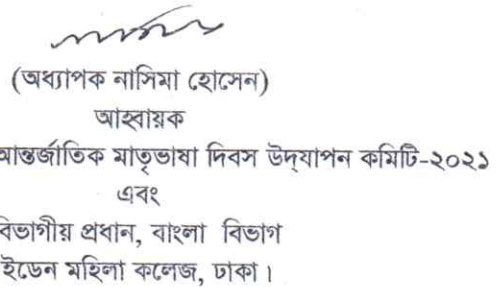 (অধ্যাপক নাসিমা হোসেন)
আহ্বায়ক
আন্তর্জাতিক মাতৃভাষা দিবস উদ্‌যাপন কমিটি-২০২১
এবং
বিভাগীয় প্রধান, বাংলা বিভাগ
ইডেন মহিলা কলেজ, ঢাকা।